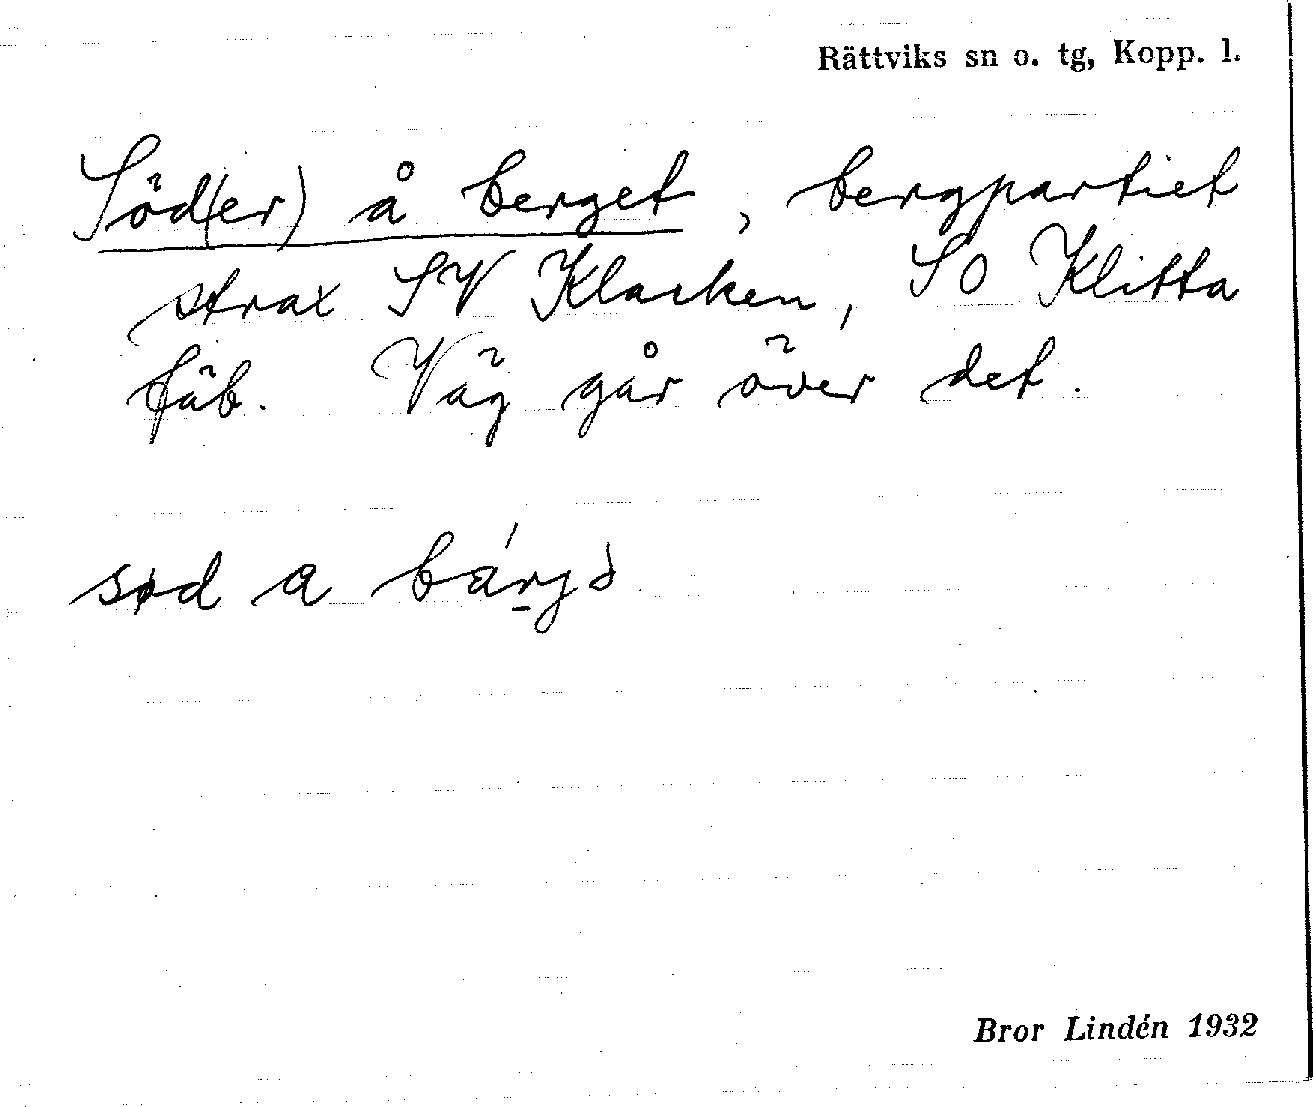 Rättviks sn o. tg, Kopp. l.
Söd(er) å berget, bergpartiet
strax SV Klacken, SO Klitta
fäb. Väg går över det.
sød a bárjə
Bror Lindén 1932